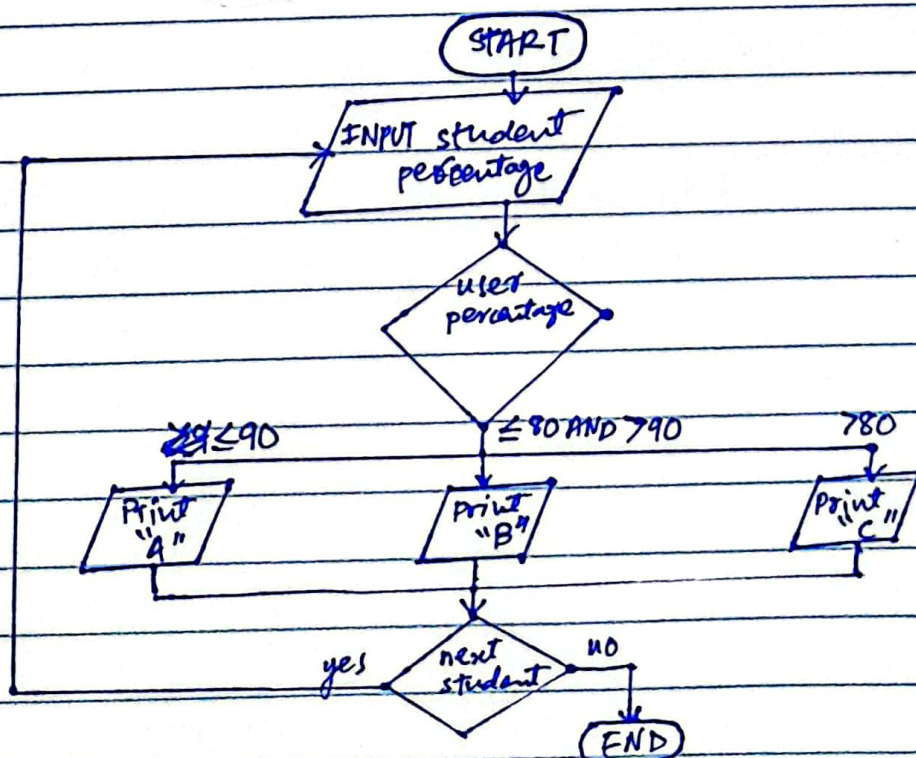 START
INPUT student
percentage
user
percentage
≤90
≤80 AND >90
>80
Print
"A"
print
"B"
print
"C"
yes
next
student
no
END